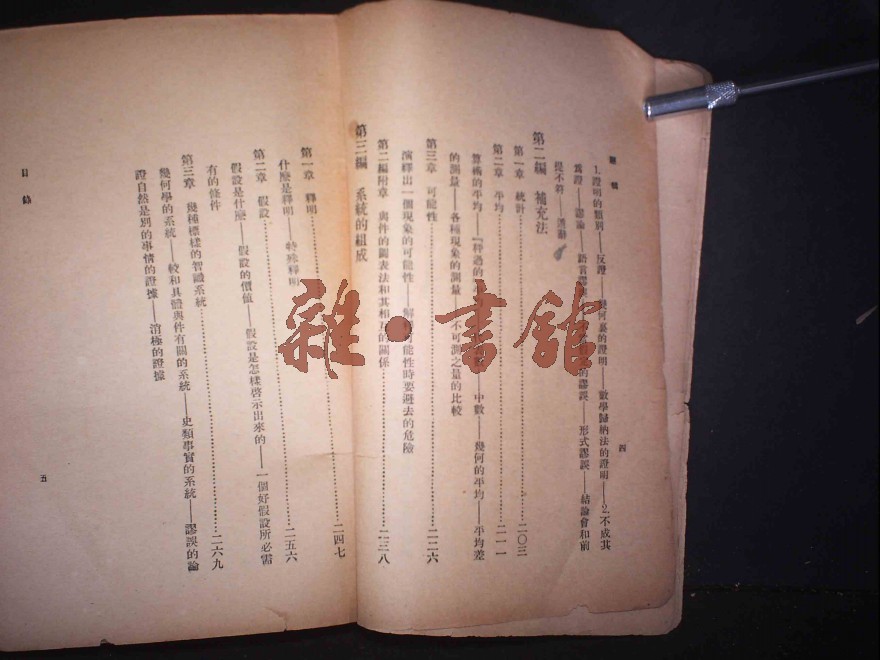 邏輯
1. 證明的類別——反證——幾何裏的證明——數學歸納法的證明——2. 不成其
爲證——謬論——語言謬誤——的謬誤——形式謬誤——結論會和前
提不符——
第二編 補充法
第一章 統計 二〇三
第二章 平均 二一一
算術的平均——『秤過的——中數——幾何的平均——平均差
的測量——各種現象的測量——不可測之量的比較
第三章 可能性 二二六
演繹出一個現象的可能性——解釋可能性時要避去的危險
第二編附章 與件的圖表法和其相互的關係 二三八
四
第三編 系統的組成
第一章 釋明 二四七
什麼是釋明——特殊釋明
第二章 假設 二五六
假設是什麼——假設的價值——假設是怎樣啓示出來的——一個好假設所必需
有的條件
第三章 幾種標樣的智識系統 二六九
幾何學的系統——較和具體與件有關的系統——史類事實的系統——謬誤的論
證自然是別的事情的證據——消極的證據
目錄
五
雜·書館